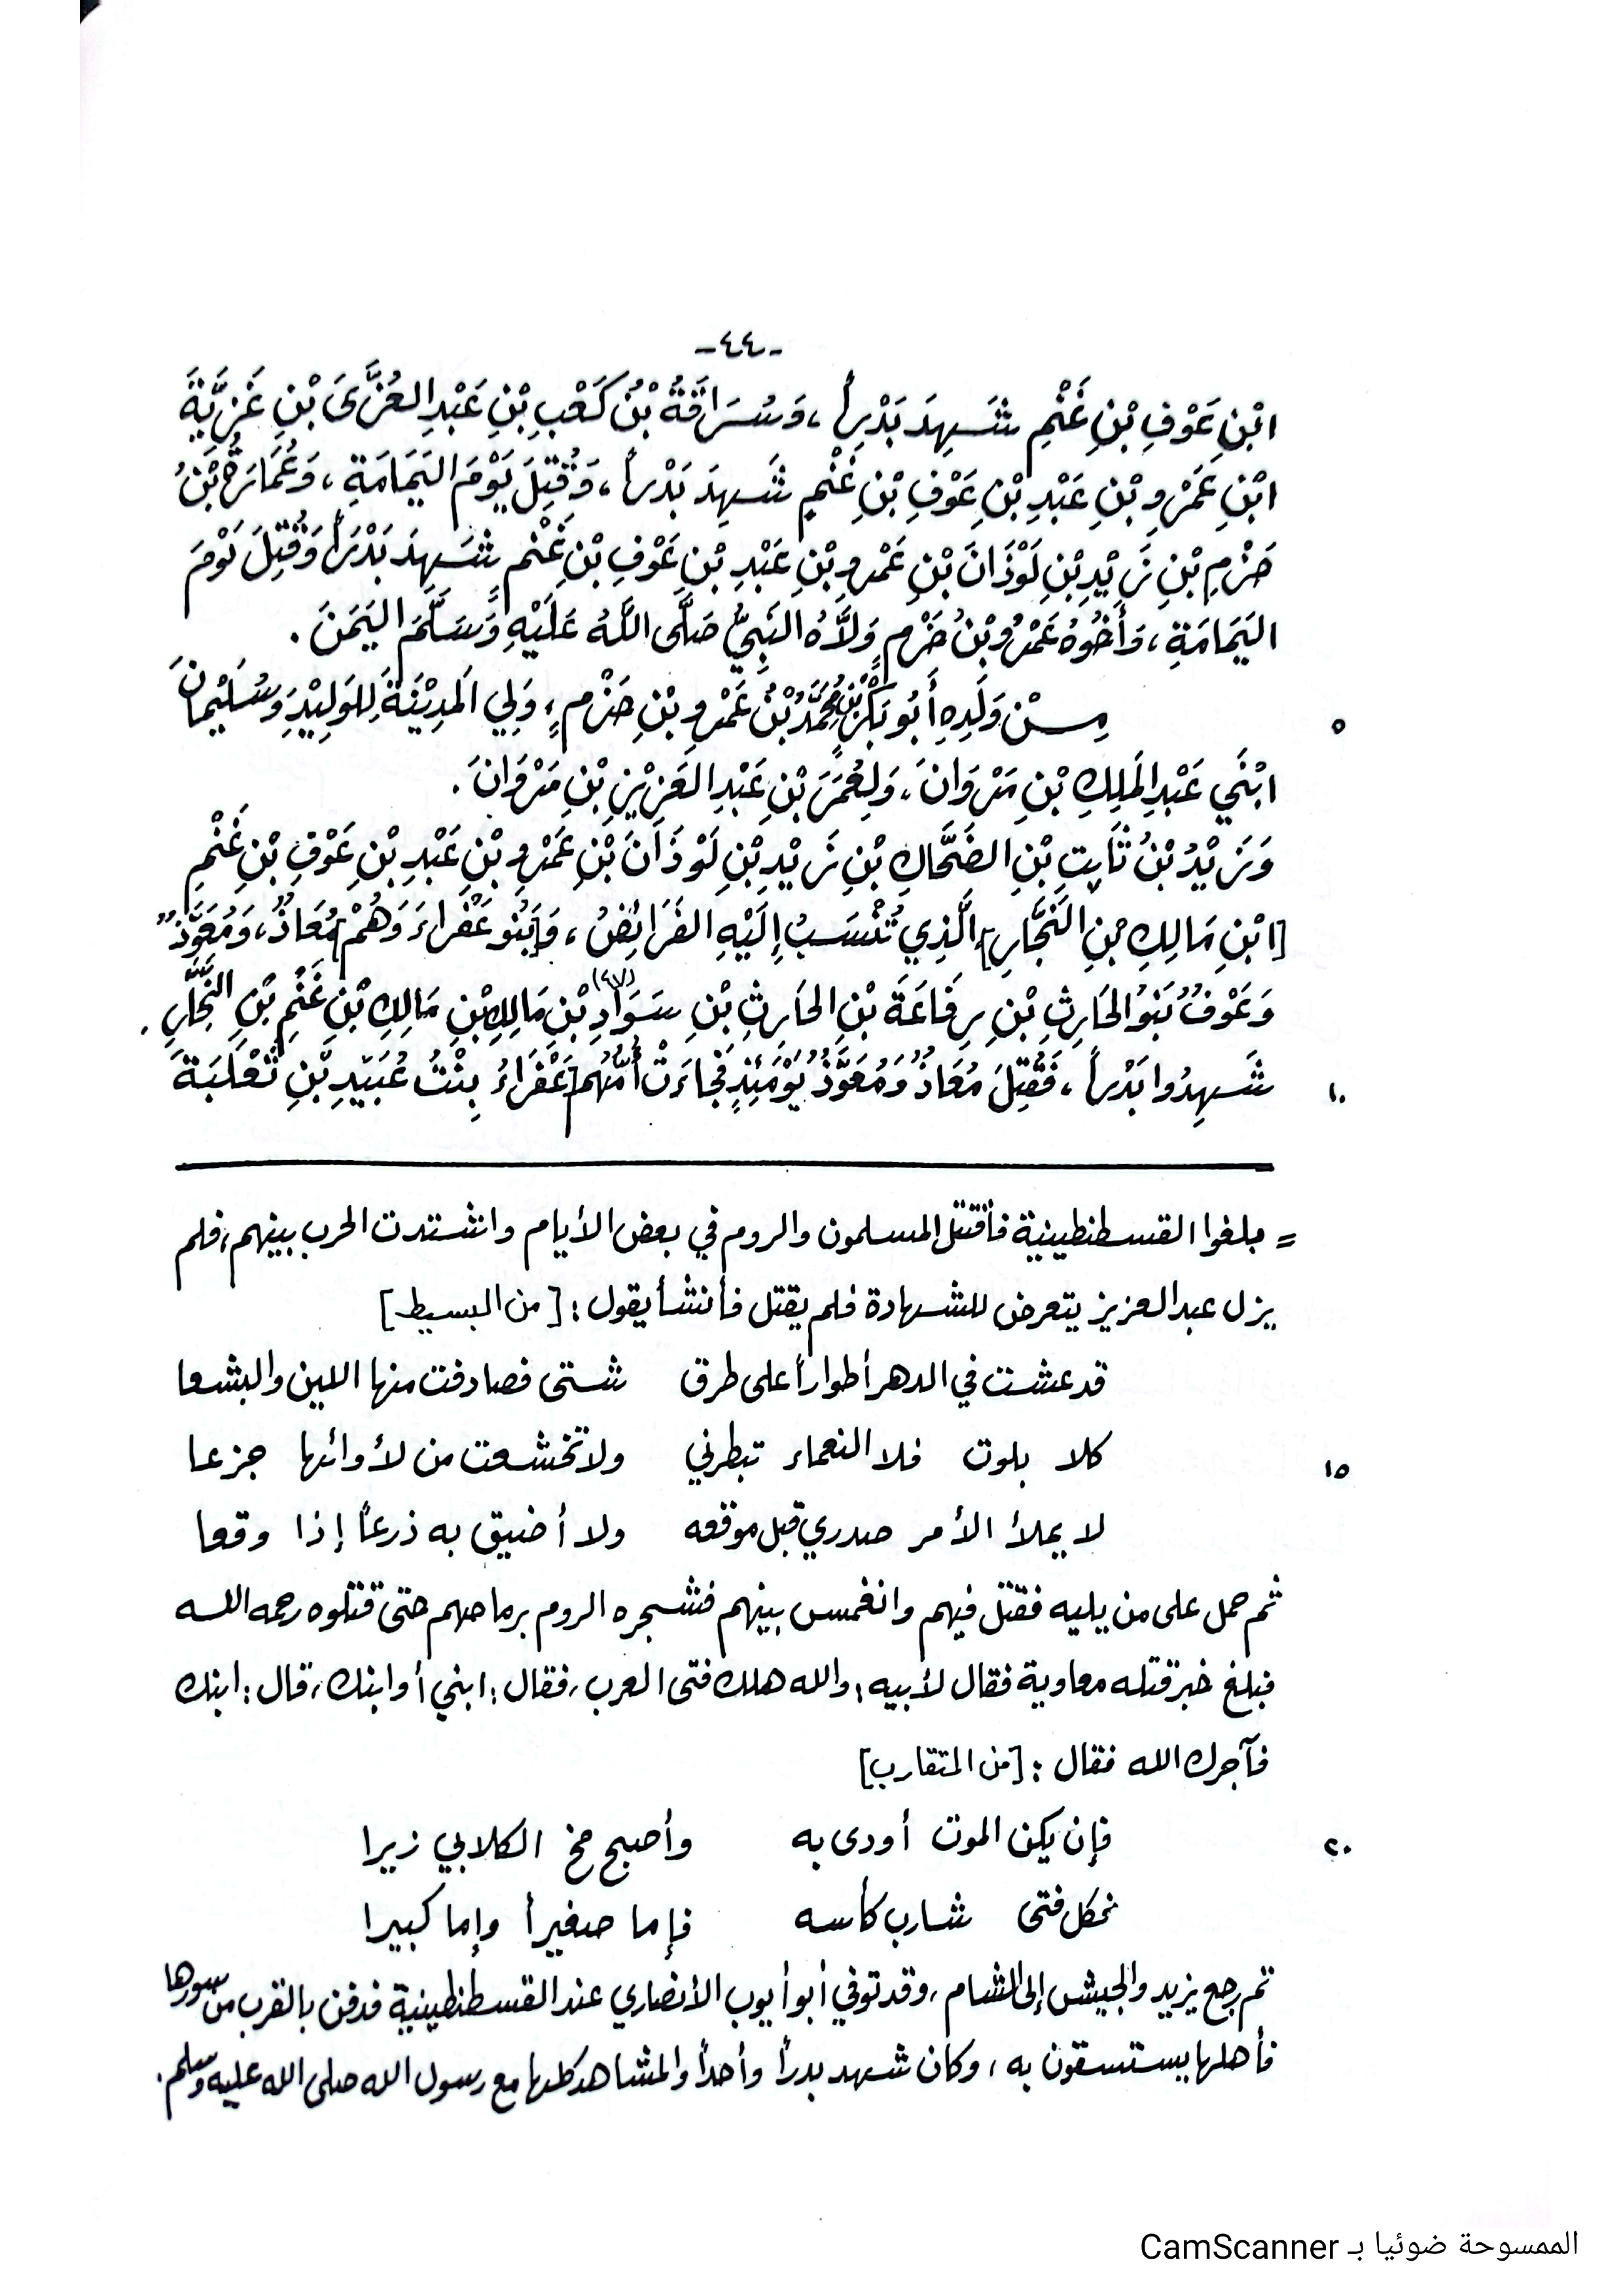 -٤٤-
ابْنِ عَوْفِ بْنِ غَنْمِ شَهِدَ بَدْراً، وَسُرَاقَةُ بْنُ كَعْبِ بْنِ عَبْدِ العُزَّىَ بْنِ غَزِيَّةَ
ابْنِ عَمْرِو بْنِ عَبْدِ بْنِ عَوْفِ بْنِ غَنْمٍ شَهِدَ بَدْراً، وَقُتِلَ يَوْمَ اليَمَامَةِ، وَعُمَارَةُ بْنُ
حَزْمِ بْنِ زَيْدِ بْنِ لَوْذَانَ بْنِ عَمْرِو بْنِ عَبْدِ بْنِ عَوْفِ بْنِ غَنْمٍ شَهِدَ بَدْرَاً وَقُتِلَ يَوْمَ
اليَمَامَةِ، وَأَخُوهُ عَمْرُو بْنُ حَزْمٍ وَلاَّهُ النَبِيُّ صَلَّى اللَّهُ عَلَيْهِ وَسَلَّمَ اليَمَنَ.
٥ مِنْ وَلَدِهِ أَبُو بَكْرِ بْنُ مُحَمَّدُ بْنُ عَمْرِو بْنِ حَزْمٍ، وَلِي المَدِيْنَةَ لِلوَلِيْدِ وَسُلَيْمَانَ
ابْنَي عَبْدِ المَلِكِ بْنِ مَرْوَانَ، وَلِعُمَرَ بْنِ عَبْدِ العَزِيْزِ بْنِ مَرْوَانَ.
وَزَيْدُ بْنُ ثَابِتِ بْنِ الضَحَّاكِ بْنِ زَيْدِ بْنِ لَوْذَانَ بْنِ عَمْرِو بْنِ عَبْدِ بْنِ عَوْفِ بْنِ غَنْمِ
[ابْنِ مَالِكِ بْنِ النَجَّارِ] الَّذِي تُنْسَبُ إِلَيْهِ الفَرَائِضُ، وَ[بَنُو عَفْرَاءَ وَهُمْ] مُعَاذٌ، وَمُعَوَّذٌ
وَعَوْفُ بَنُو الحَارِثِ بْنِ رِفَاعَةَ بْنِ الحَارِثِ بْنِ سَوَادِ (٤٧) بْنِ مَالِكِ بْنِ مَالِكِ بْنِ غَنْمِ بْنِ النَّجَّارِ.
١٠ شَهِدُوا بَدْراً، فَقُتِلَ مُعَاذُ وَمُعَوَّذُ يَوْمَئِذٍ فَجَاءَتْ أُمُّهُم [عَفْرَاءُ بِنْتُ عُبَيْدِ بْنِ ثَعْلَبَةَ
= بلغوا القسطنطينية فأقتتل المسلمون والروم في بعض الأيام واشتدت الحرب بينهم، فلم
يزل عبد العزيز يتعرض للشهادة فلم يقتل فأنشأ يقول: [من البسيط]
قد عشت في الدهر أطواراً على طرق شتى فصادفت منها اللين والبشعا
١٥ كلا بلوت فلا النعماء تبطرني ولا تخشعت من لأوائها جزعا
لا يملأ الأمر صدري قبل موقعه ولا أضيق به ذرعاً إذا وقعا
ثم حمل على من يليه فقتل فيهم وانغمس بينهم فشجره الروم برماحهم حتى قتلوه رحمه الله
فبلغ خبر قتله معاوية فقال لأبيه: والله هلك فتى العرب، فقال: ابني أو ابنك، قال: ابنك
فآجرك الله فقال: [من المتقارب]
٢٠ فإن يكن الموت أودى به وأصبح مخ الكلابي زيرا
فكل فتى شارب كأسه فإما صغيراً وإما كبيرا
ثم رجع يزيد والجيش إلى الشام، وقد توفي أبو أيوب الأنصاري عند القسطنطينية فدفن بالقرب من سورها
فأهلها يستسقون به، وكان شهد بدراً وأحداً والمشاهد كلها مع رسول الله صلى الله عليه وسلم.
الممسوحة ضوئيا بـ CamScanner